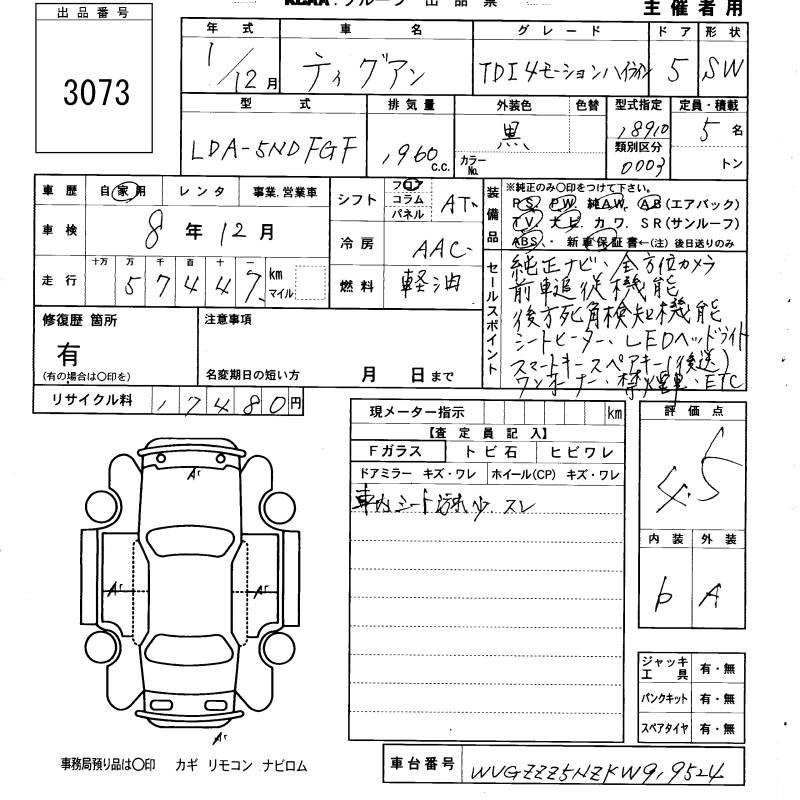 出品番号
3073
KCAA グループ 出品票
主催者用
年式 車名 グレード ドア 形状
1/12月 ティグアン TDI4モーションハイライン 5 SW
型式 排気量 外装色 色替 型式指定 定員・積載
LDA-5NDFGF 1960 C.C. 黒 カラーNo. 18910 5名
類別区分 0003 トン
車歴 自家用 レンタ 事業.営業車
車検 8年12月
走行 十万 万 千 百 十 一 57447. km マイル
シフト フロア コラム パネル AT.
冷房 AAC
燃料 軽油
装備品
※純正のみ○印をつけて下さい。
PS. PW. 純AW. AB(エアバック)
TV. ナビ. カワ. SR(サンルーフ)
ABS. 新車保証書←(注)後日送りのみ
セールスポイント
純正ナビ、全方位カメラ
前車追従機能
後方死角検知機能
シートヒーター、LEDヘッドライト
スマートキースペアキー(後送)
ワンオーナー、禁煙車、ETC
修復歴 箇所 注意事項
有
(有の場合は○印を) 名変期日の短い方 月 日まで
リサイクル料 17480円
現メーター指示 km
【査定員記入】
Fガラス トビ石 ヒビワレ
ドアミラー キズ・ワレ ホイール(CP) キズ・ワレ
車内シート汚れ少 スレ
評価点
4.5
内装 外装
b A
ジャッキ工具 有・無
パンクキット 有・無
スペアタイヤ 有・無
事務局預り品は○印 カギ リモコン ナビロム
車台番号 WVGZZZ5NZKW919524